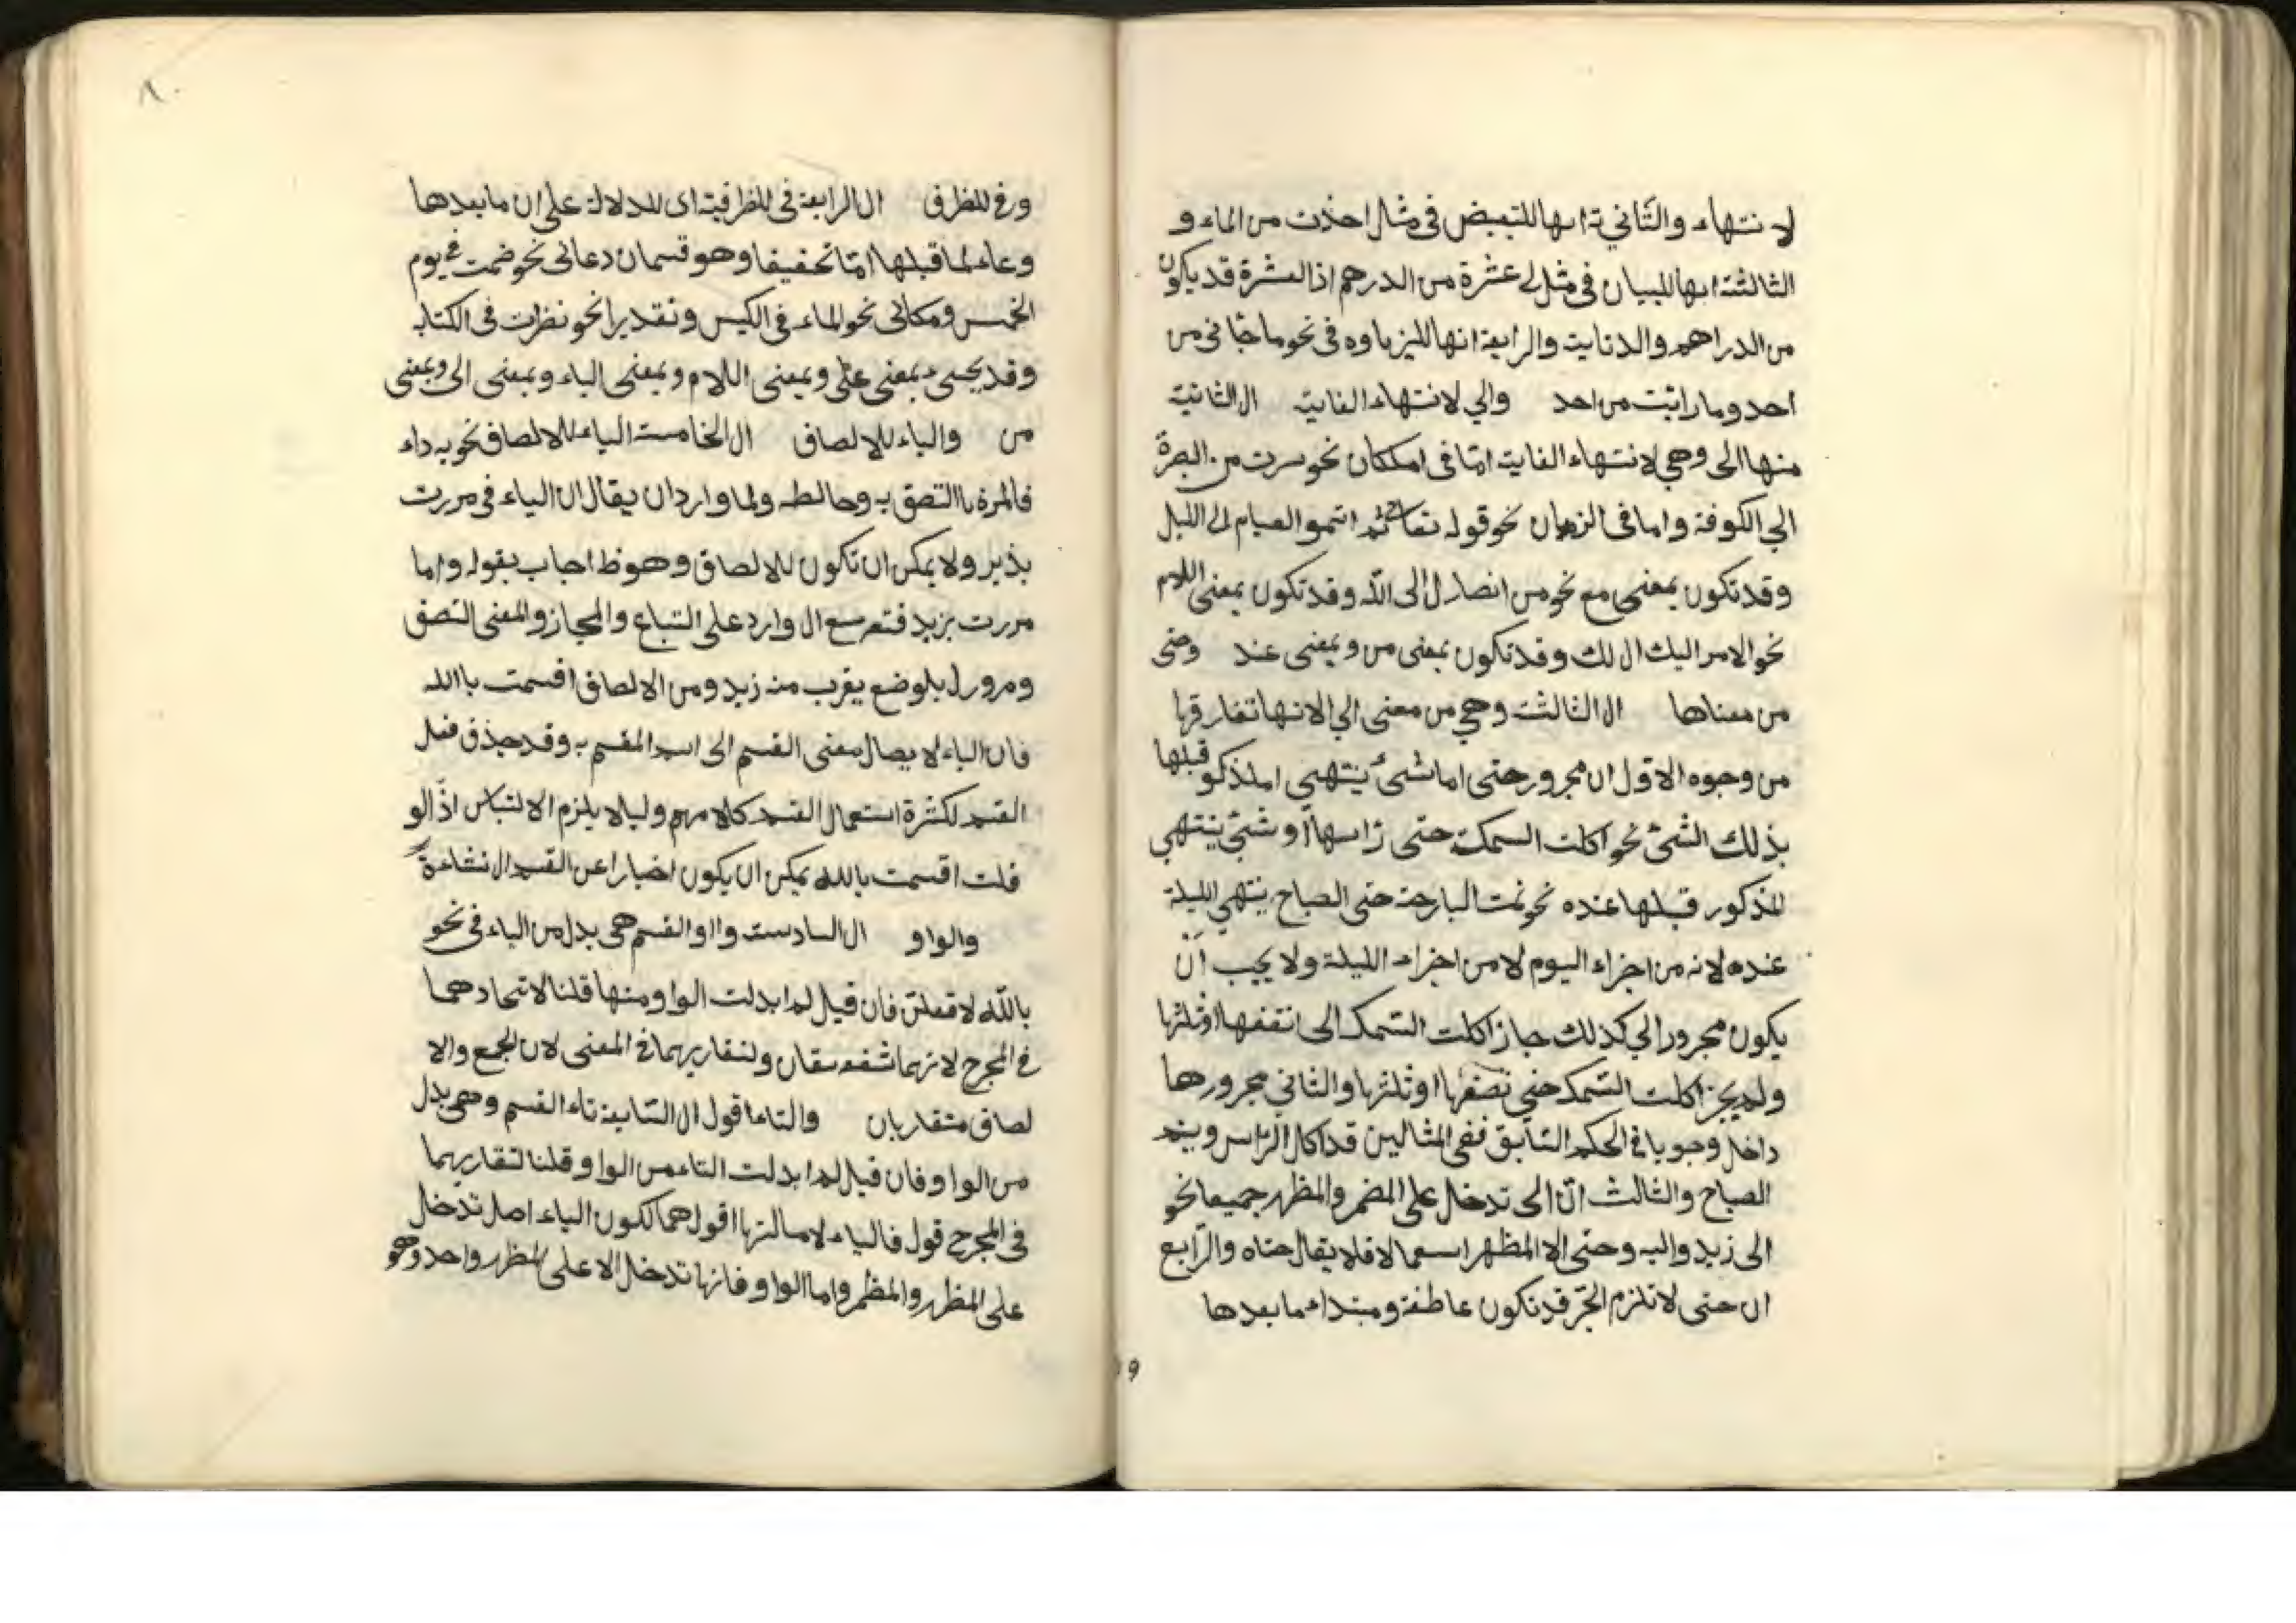 لا نتهاء والثاني ة انها للتبعيض فى مثل اخذت من الماء و
الثالثة انها للبيان فى مثل لى عشرة من الدرهم اذ العشرة قد يكون
من الدراهم والدنايت والرابعة انها لليزياوه فى نحو ما جانى من
احد وما رايت من احد والي لانتهاء الغاية ال الثانية
منها الى وهي لانتهاء الغاية امّا فى امككان نحو سرت من البصرة
الي الكوفة واما فى الزمان نحو قوله تعا ثم اتموا الصيام الى الليل
وقد تكون بمعنى مع نحو من انصار ال الى الله وقد تكون بمعنى اللام
نحو الامر اليك ال لك وقد تكون بمعنى من وبمعنى عند وحتى
من معناها ال الثالثة وهي من معنى الي الا نها تفارقها
من وجوه الاول ان مجرور حتى اما شئ ينتهي املذكو قبلها
بذلك الشئ نحو اكلت السمكت حتى راسها او شئ ينتهي
للذكور قبلها عنده نحو نمت البارحة حتى الصباح ينتهي الليلة
عنده لانه من اجزاء اليوم لا من اجزاء الليلة ولا يجب ان
يكون مجرور الي كذلك جاز اكلت السمك الى نتقفها او ثلثها
ولم يجز اكلت السمك حتى نصفها او ثلثها والثاني مجرورها
داخل وجوبا فى الحكم السّابق ففى المثالين قد اكل الراس وينم
الصباح والثالث انّ الى تدخل على المضمر والمظهر جميعا نحو
الى زيد واليه وحتى الا المظهر استعمالا فلا يقال حتاه والرّابع
ان حتى لا تلزم الجرّ قد تكون عاطفة ومبتداء ما بعدها
وفى للظرف ال الرابعة فى للظرفية اى للدلالة على ان ما بعدها
وعاء لما قبلها امّا تحفيفا وهو قسمان دعانى نحو ضمت فى يوم
الخمس ومكانى نحو الماء فى الكيس وتقديرا نحو نظرت فى الكتاب
وقد يجىء بمعنى على وبمعنى اللام وبمعنى الباء وبمعنى الى وبمعنى
من والباء للالصاق ال الخامست الباء للالصاق نحو به داء
فالمرة باالتصق به وحالطه ولما وارد ان يقال ان الباء فى مررت
بذير ولا يمكن ان تكون للالصاق وهو ظ اجاب بقوله واما
مررت بزيد فتعر سع ال وارد على التباع والمجاز والمعنى التصق
ومرورل بلوضع يقرب منه زيد ومن الالصاق اقسمت باالله
فان الباء لا يصال معنى القسم الى اسم المقسم به وقد حذف فعل
القسم لكثرة استعمال القسم كلامهم وليلا يلزم الالتباس اذ الو
قلت اقسمت بالله يمكن ان يكون اخبارا عن القسم ال نشاءة
والواو ال السادست واو القسم هى بدل من الباء فى نحو
بالله لافعلن فان قيل لم ابدلت الواو منها قلنا لاتحادهما
فى المجرح لانهما شفه سقان ولتقاربهما فى المعنى لان الجمع والا
لصاق متقاربان والتاء اقول ال السّابعة تاء القسم وهى بدل
من الواو فان قيل لم ابدلت التاء من الواو قلنا لتقاربهما
فى المجرح قول فالباء لا صالتها اقول هما لكون الباء اصل تدخل
على المظهر والمظمر واما الواو فانها تدخل الا على المظهر واحد وهو